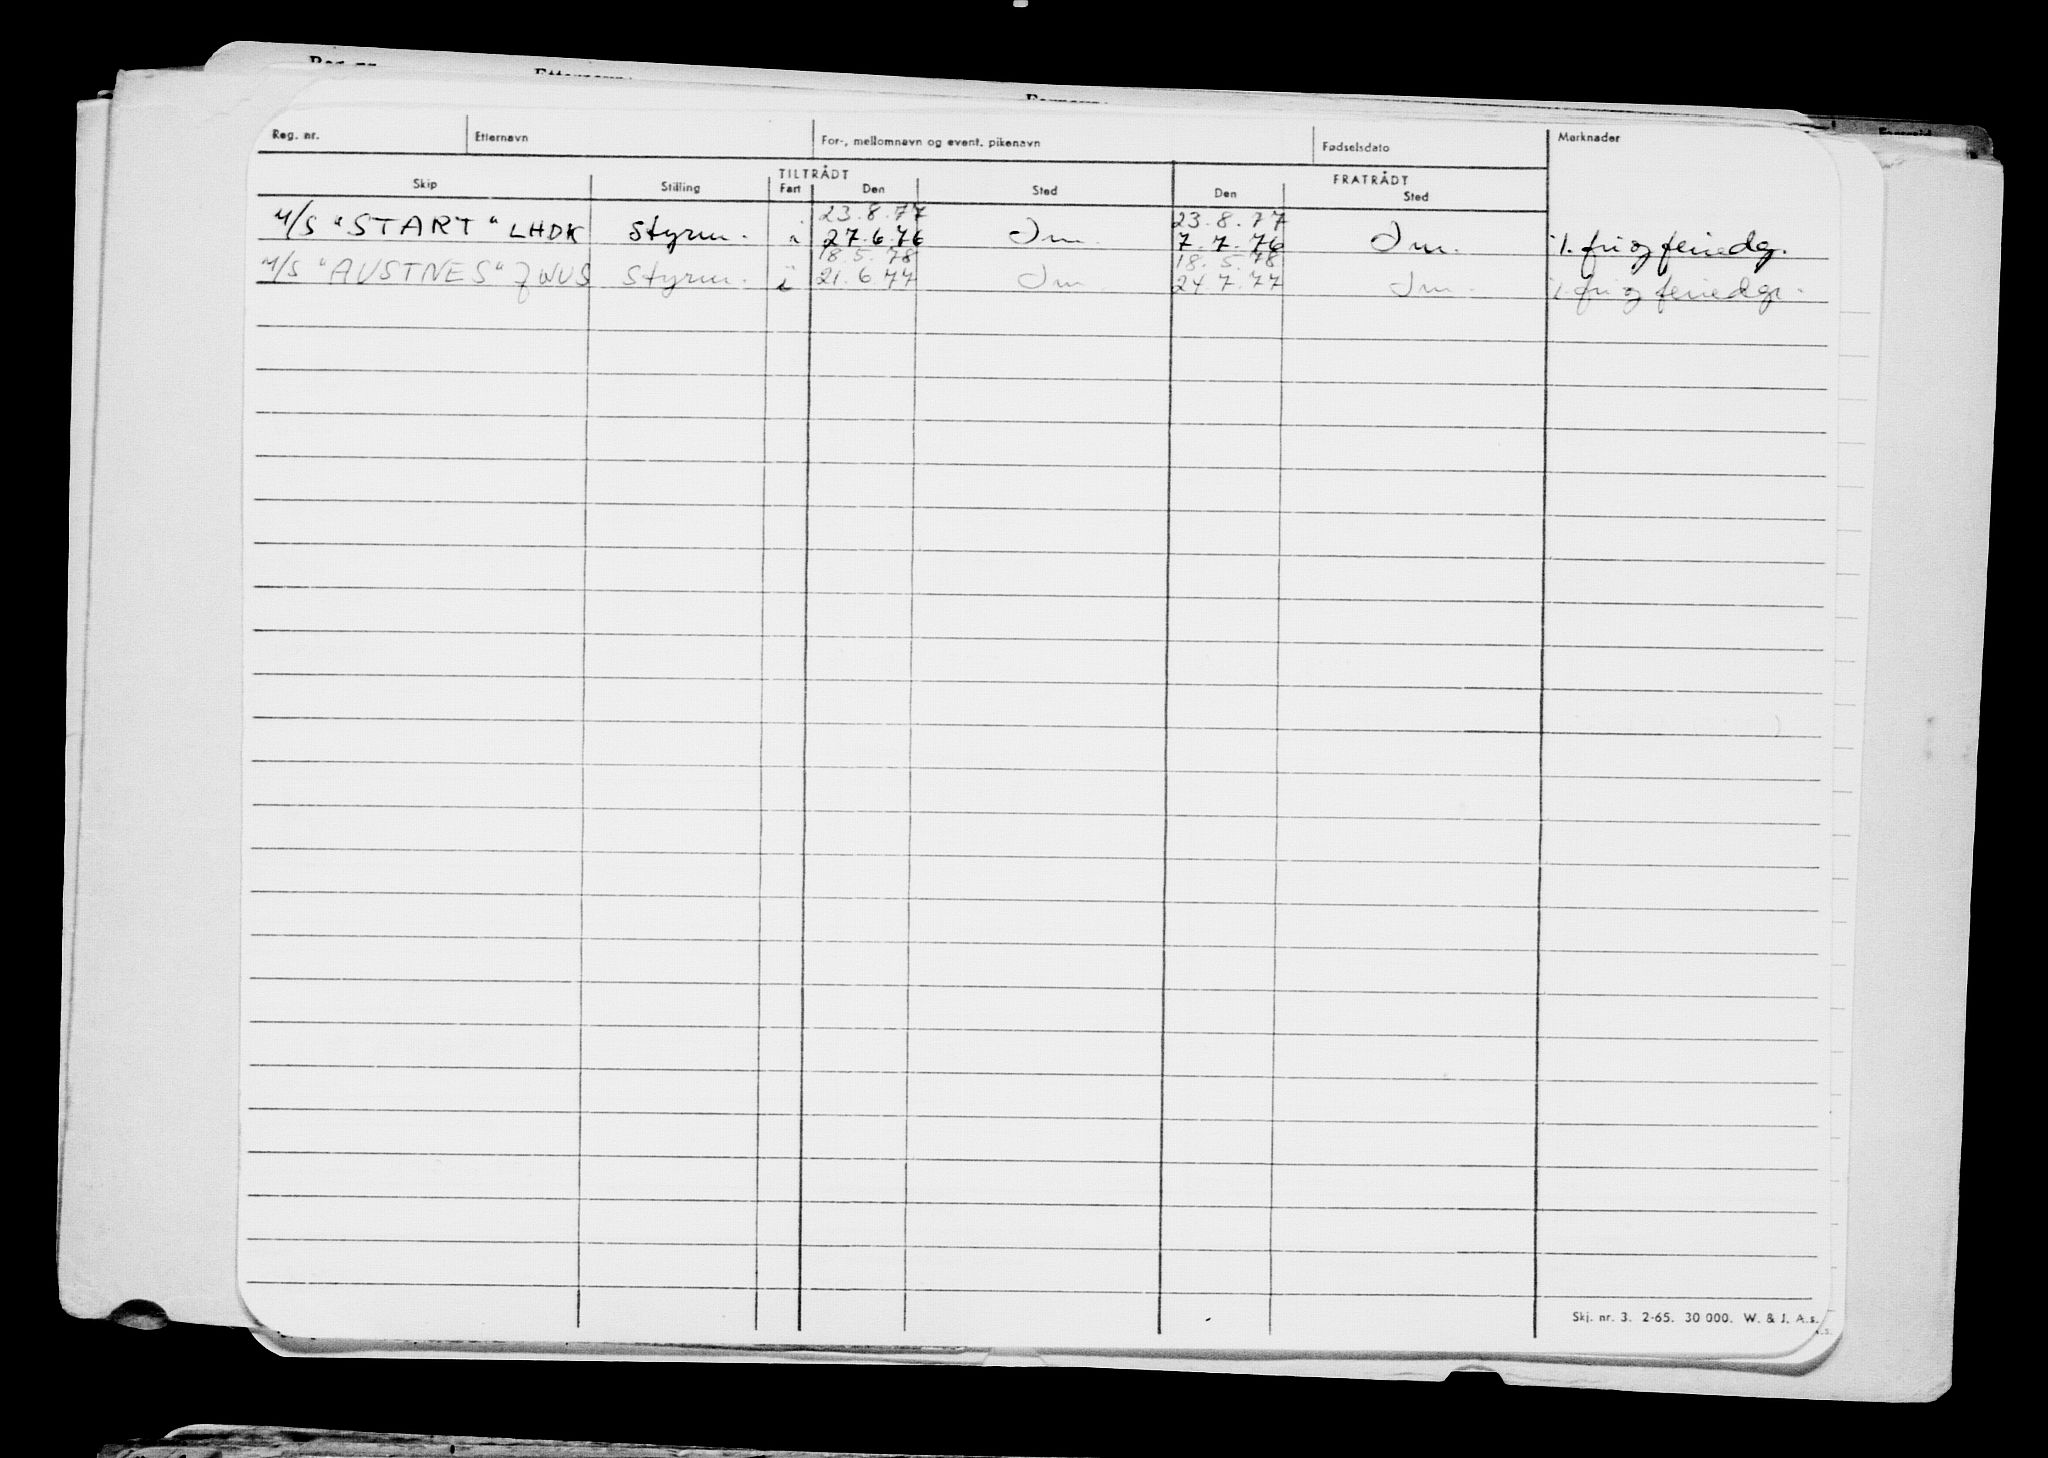 Reg. nr. Etternavn For-, mellomnavn og event. pikenavn Fødselsdato Merknader
TILTRÅDT FRATRÅDT
Skip Stilling Fart Den Sted Den Sted
23.8.77 23.8.77
M/S "START" LHDK Styrm. i 27.6.76 Inn. 7.7.76 Inn. i/. fri og feriedg.
18.5.78 18.5.78
M/S "AUSTNES" JWUS Styrm. i 21.6.77 Inn. 24.7.77 Inn. i/. fri og feriedgr.
Skj. nr. 3. 2-65. 30 000. W. & J. A.s.